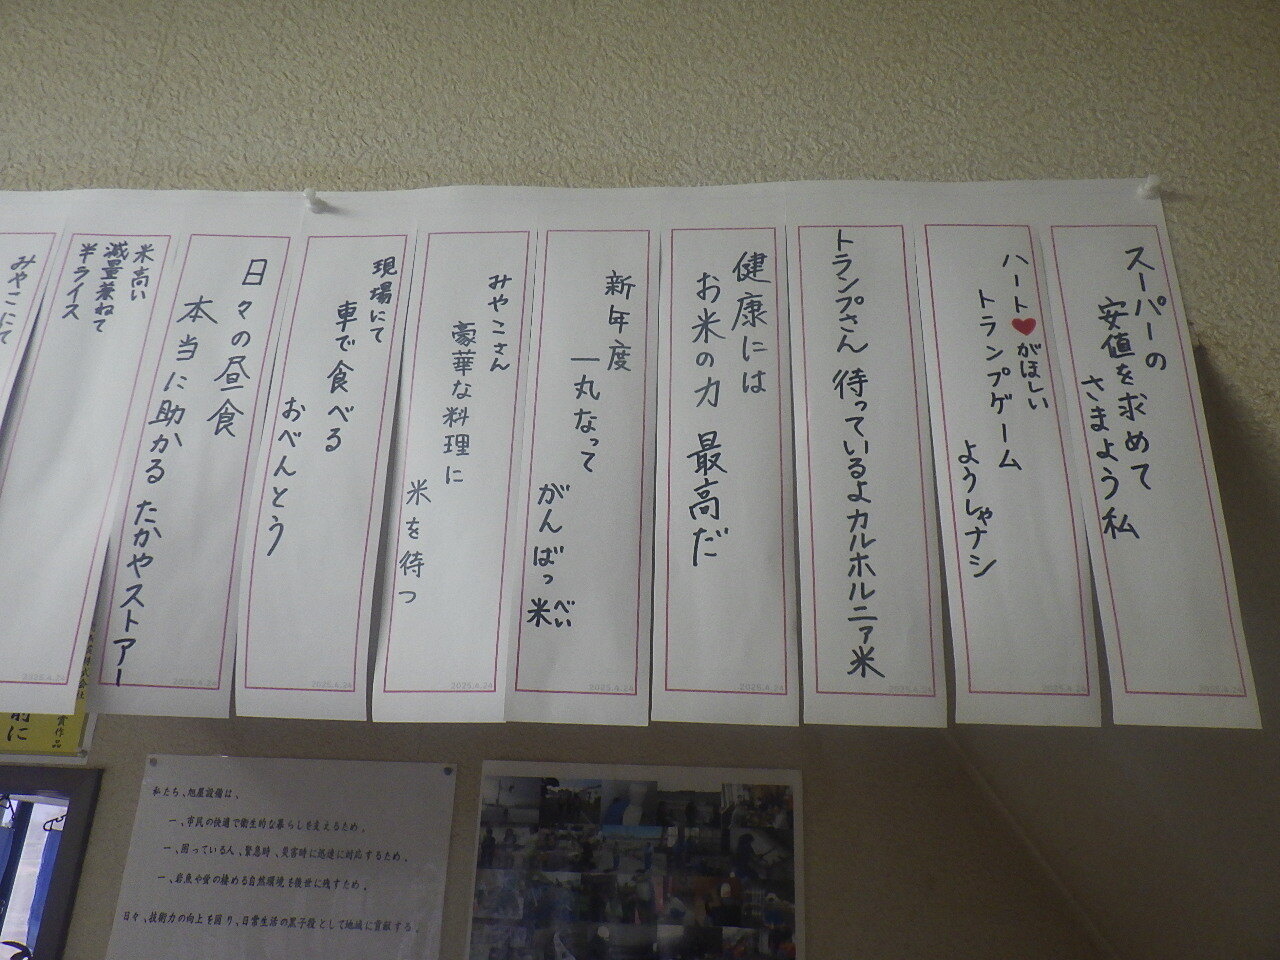 スーパーの
安値を求めて
さまよう私
ハート❤がほしい
トランプゲーム
ようしゃナシ
トランプさん 待っているよカルホルニァ米
健康には
お米の力 最高だ
新年度
一丸なって
がんばっ米
べい
みやこさん
豪華な料理に
米を待つ
現場にて
車で食べる
おべんとう
日々の昼食
本当に助かる たかやストアー
米高い
減量兼ねて
半ライス
みやこにて
2025.4.24
2025.4.24
2025.4.24
2025.4.24
2025.4.24
2025.4.24
前に
賞作品
私たち、旭屋設備は、
一、市民の快適で衛生的な暮らしを支えるため。
一、困っている人、緊急時、災害時に迅速に対応するため。
一、岩魚や蛍の棲める自然環境を後世に残すため。
日々、技術力の向上を図り、日常生活の黒子役として地域に貢献する。